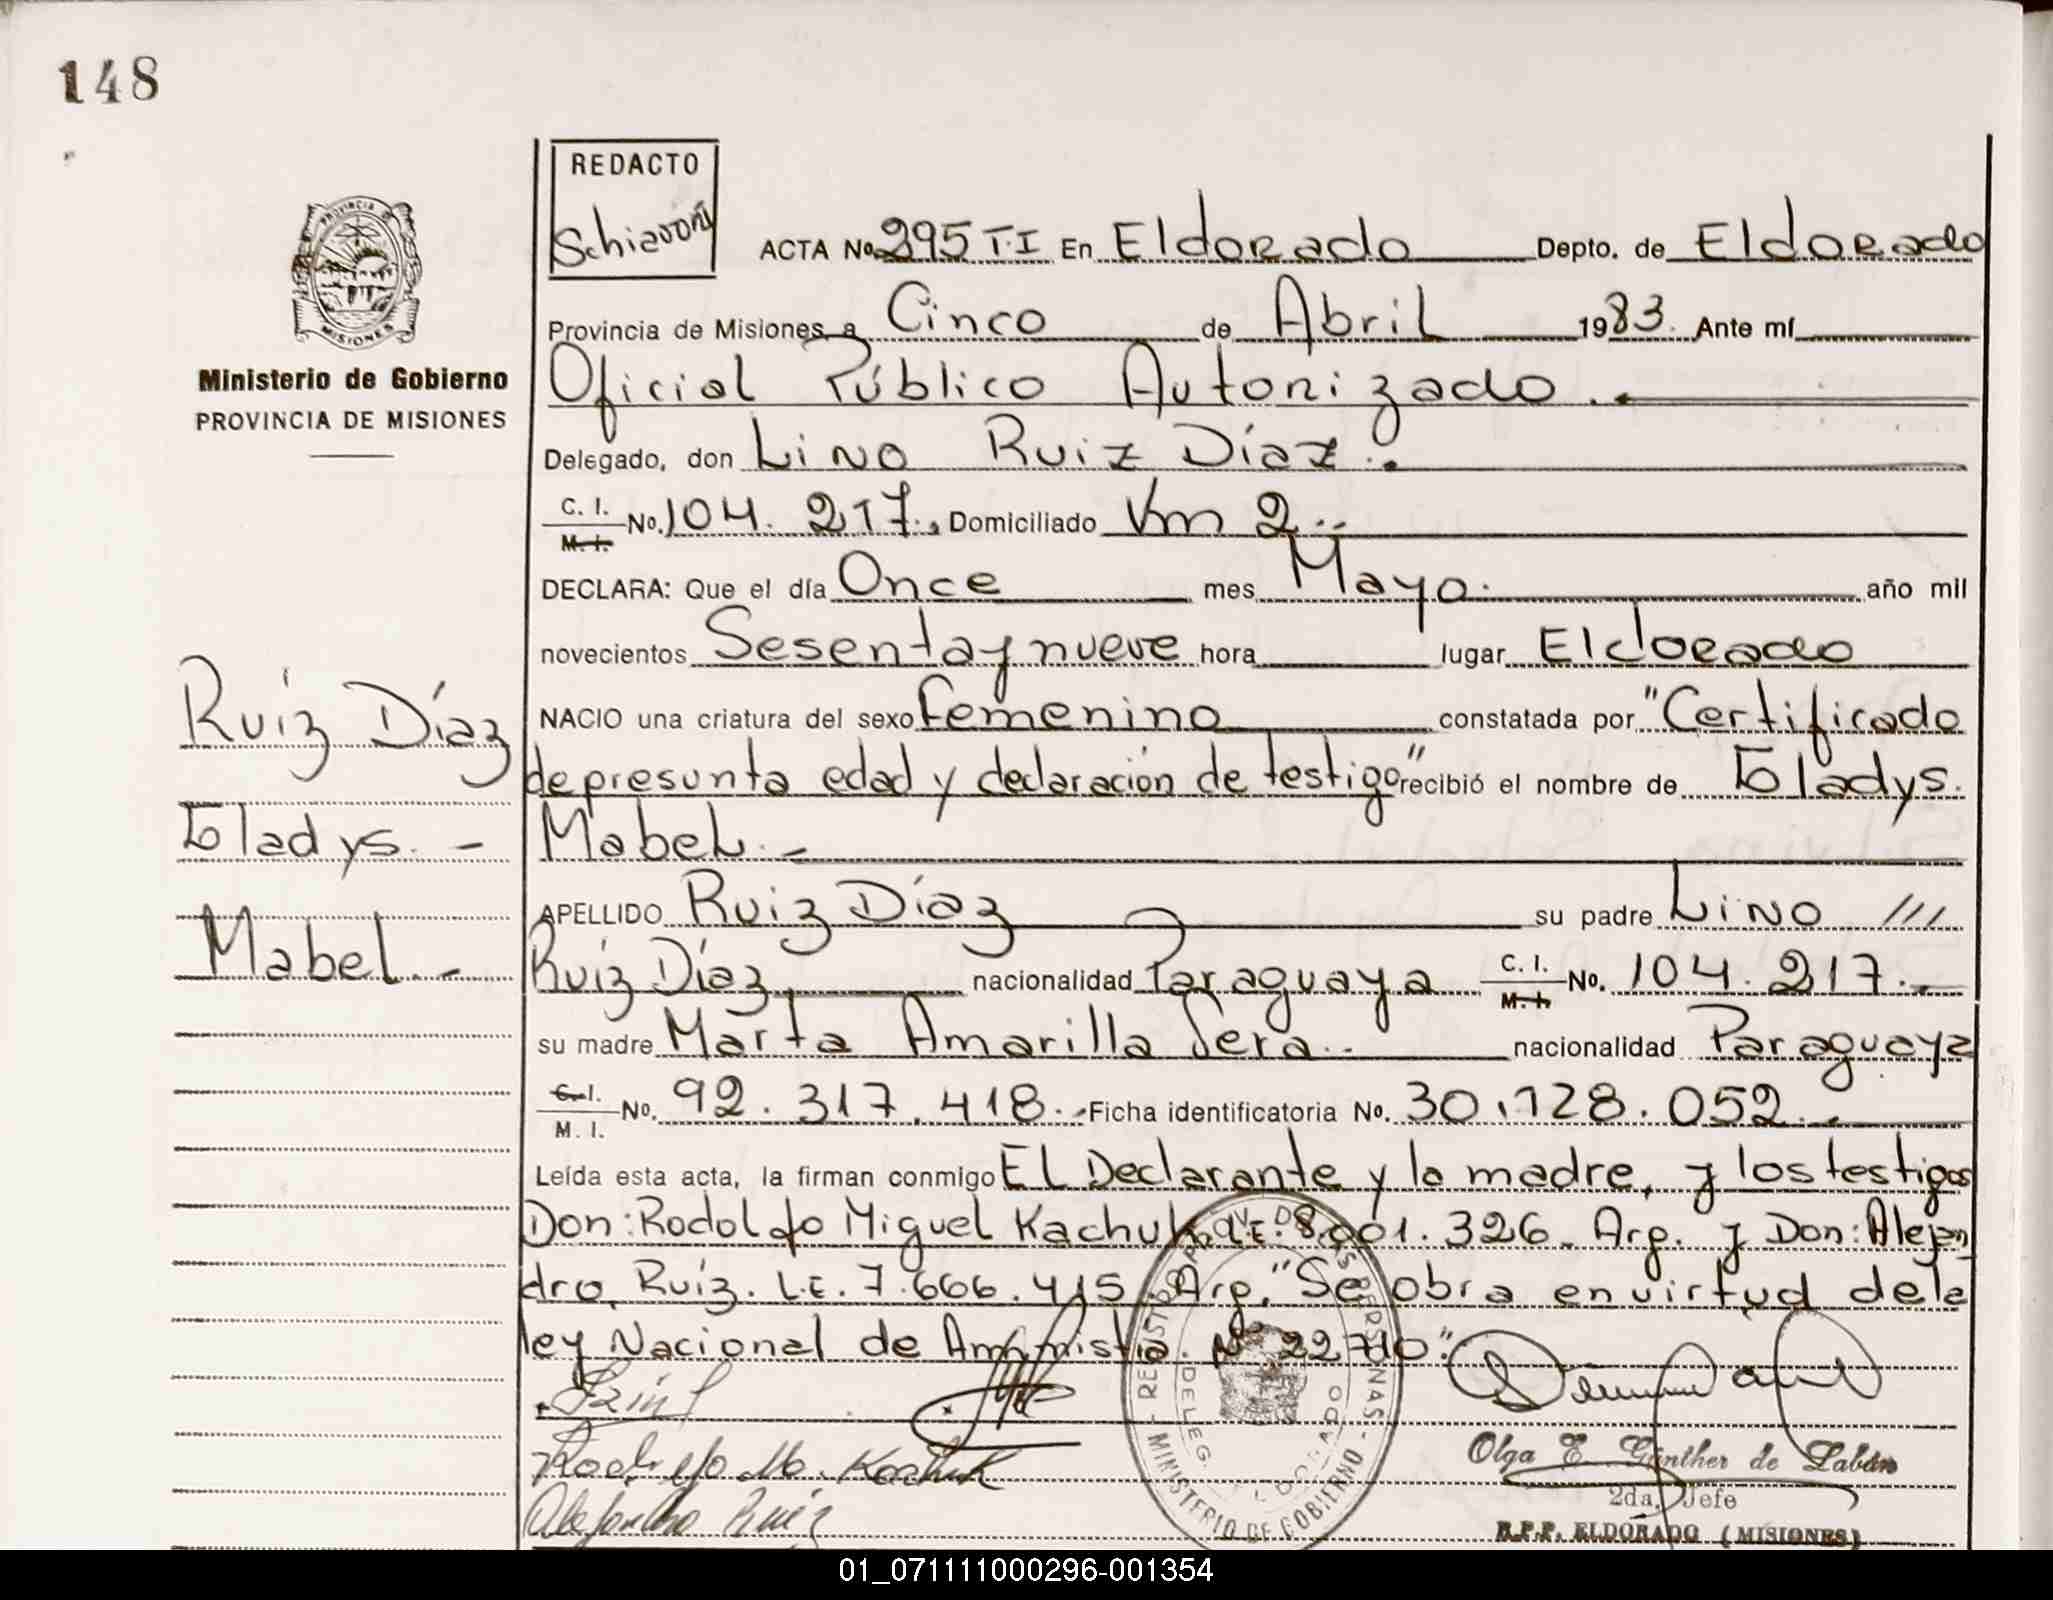 148
REDACTO
Schiavoni
ACTA No. 295 T.I En Eldorado Depto. de Eldorado
Provincia de Misiones a Cinco de Abril 1983. Ante mí
Oficial Público Autorizado.
Delegado, don Lino Ruiz Díaz.
C. I. M. I. No. 104.217. Domiciliado Km 2..
DECLARA: Que el día Once mes Mayo. año mil
novecientos Sesenta y nueve hora lugar Eldorado
NACIO una criatura del sexo femenino constatada por "Certificado
de presunta edad y declaración de testigo" recibió el nombre de Gladys.
Mabel.-
APELLIDO Ruiz Díaz su padre Lino ///
Ruiz Díaz nacionalidad Paraguaya C. I. M. I. No. 104.217.-
su madre Marta Amarilla Sera.. nacionalidad Paraguaya
C. I. M. I. No. 92.317.418.- Ficha identificatoria No. 30.128.052.-
Leída esta acta, la firman conmigo El Declarante y la madre, y los testigos
Don: Rodolfo Miguel Kachuk L.E. 8.001.326. Arg. y Don: Alejan
dro Ruiz. L.E. 7.666.415. Arg. "Se obra en virtud de la
ley Nacional de Amnistia. Nº 22710".
Rodolfo M. Kachuk
Alejandro Ruiz
Olga E. Günther de Labán
2da. Jefe
R.P.P. ELDORADO (MISIONES)
PROVINCIA DE
MISIONES
Ministerio de Gobierno
PROVINCIA DE MISIONES
Ruiz Díaz
Gladys.-
Mabel.-
MINISTERIO DE GOBIERNO
01_071111000296-001354